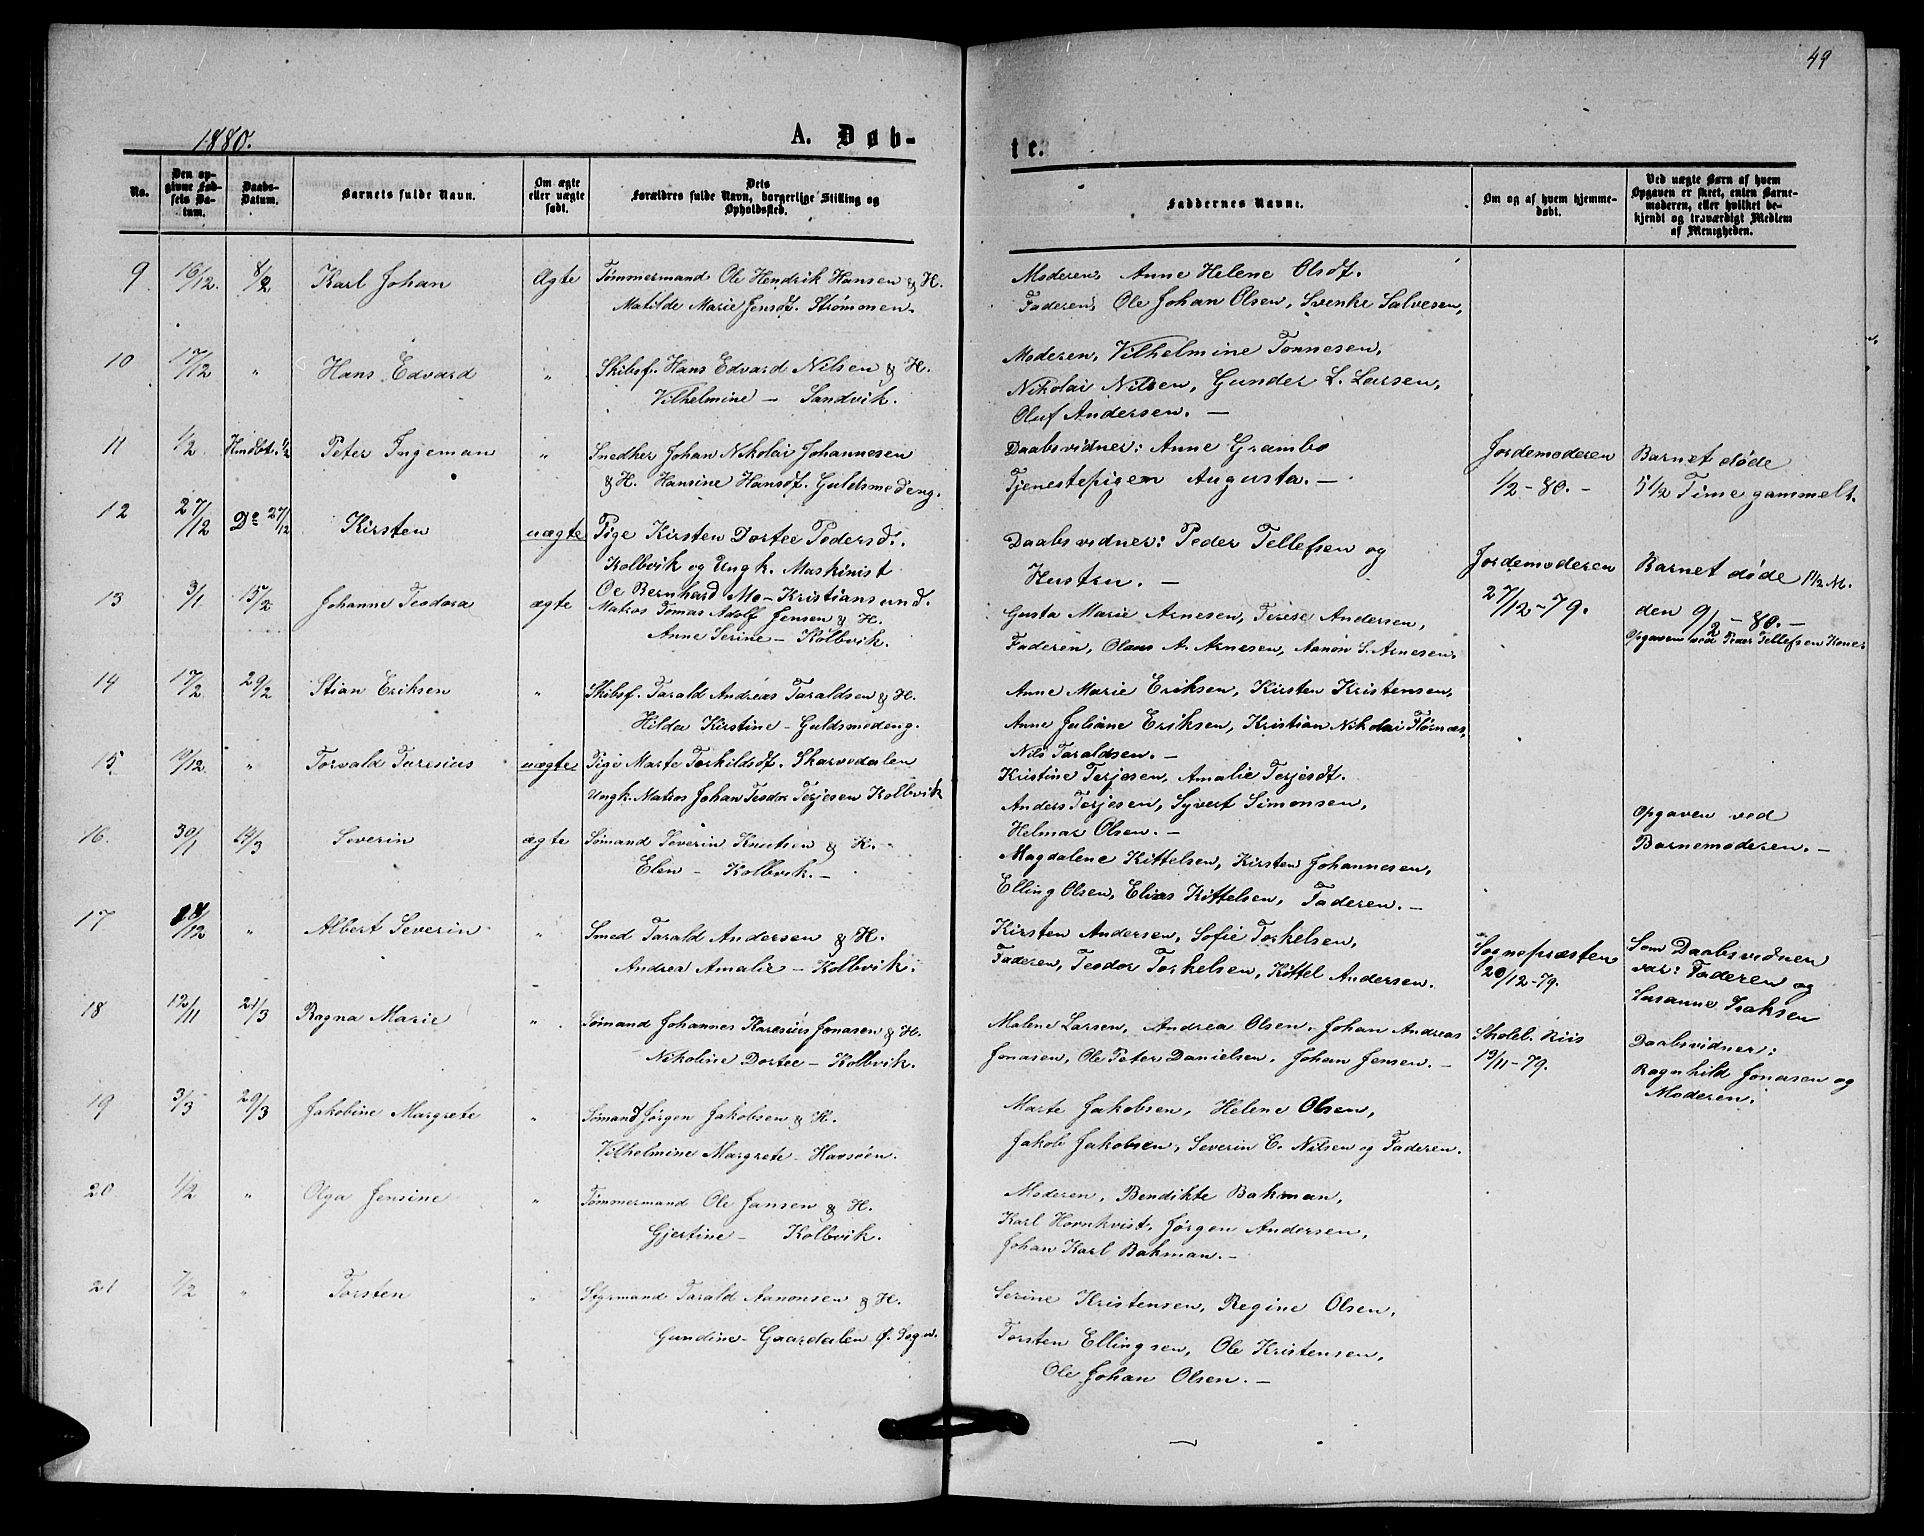 49
1880.
A. Døb-
te.
No.
Den op-
givne Fød-
sels Da-
tum.
Daabs-
Datum.
Barnets fulde Navn.
Om ægte
eller uægte
født.
Dets
Forældres fulde Navn, borgerlige Stilling og
Opholdssted.
Faddernes Navne.
Om og af hvem hjemme-
døbt.
Ved uægte Børn af hvem
Opgaven er skeet, enten Barne-
moderen, eller hvilket be-
kjendt og troværdigt Medlem
af Menigheden.
9. 16/12. 8/2 Karl Johan Ægte Tømmermand Ole Hendrik Hansen & H.
Matilde Marie Jensdt. Strømmen.
Moderen, Anne Helene Olsdt.
Faderen, Ole Johan Olsen, Svenke Salvesen,
10 17/12 " Hans Edvard " Skibsf. Hans Edvard Nilsen & H.
Vilhelmine — Sandvik.
Moderen, Vilhelmine Tønnesen,
Nikolai Nilsen, Gunder L. Larsen,
Oluf Andersen. —
11 1/2 Hmdbt. 1/2 Peter Ingeman " Snedker Johan Nikolai Johannesen
& H. Hansine Hansdt. Guldsmedeng.
Daabsvidner: Anne Grambo
Tjenestepigen Augusta. —
Jordemoderen
1/2-80. —
Barnet døde
5 1/2 Time gammelt.
12 27/12 Do 27/12 Kirsten uægte Pige Kirsten Dortee Pedersdt.
Kolbvik og Ungk. Maskinist
Oe Bernhard Mo — Kristiansund.
Daabsvidner: Peder Tellefsen og
Hustru. —
Jordemoderen
27/12-79.
Barnet døde 1 1/2 M.
den 9/2-80. —
Opgaven ved Peder Tellefsen Kone
13 3/1 15/2 Johanne Teodora ægte Matros Tomas Adolf Jensen & H.
Anne Serine — Kolbvik.
Gusta Marie Arnesen, Terese Andersen,
Faderen, Olaus A. Arnesen, Aanon S. Arnesen,
14 17/2 29/2 Stian Eriksen " Skibsf. Tarald Andreas Taraldsen & H.
Hilda Kirstine — Guldsmedeng.
Anne Marie Eriksen, Kirsten Kristensen,
Anne Juliane Eriksen, Kristian Nikolai Flørnæs,
Nils Taraldsen. —
15 19/12. " Torvald Taresius uægte Pige Marte Torkildsdt. Skarvedalen
Ungk. Matros Johan Teodor Terjesen Kolbvik
Kristine Terjesen, Amalie Terjesdt.
Anders Terjesen, Syvert Simonsen,
Helmar Olsen. —
Opgaven ved
Barnemoderen. —
16. 30/1 14/3 Severin ægte Sømand Severin Knutsen & H.
Elen — Kolbvik. —
Magdalene Kittelsen, Kirsten Johannesen,
Elling Olsen, Elias Kittelsen, Faderen. —
17 /12 " Albert Severin " Smed Tarald Andersen & H.
Andrea Amalie — Kolbvik.
Kirsten Andersen, Sofie Torkelsen,
Faderen, Teodor Torkelsen, Kittel Andersen.
Sognepræsten
20/12-79.
Som Daabsvidner
var: Faderen og
Susanne Isaksen
18 12/11 21/3 Ragna Marie " Sømand Johannes Karesius Jonasen & H.
Nikoline Dortee — Kolbvik.
Malene Larsen, Andrea Olsen, Johan Andreas
Jonasen, Ole Peter Danielsen, Johan Jensen. —
Skolel. Riis
19/11-79.
Daabsvidner:
Ragnhild Jonasen og
Moderen.
19 3/3 29/3 Jakobine Margrete " Sømand Jørgen Jakobsen & H.
Vilhelmine Margrete — Havsøen.
Marte Jakobsen, Helene Olsen,
Jakob Jakobsen, Severin C. Nilsen og Faderen.
20 1/2 " Olga Jensine " Tømmermand Ole Jansen & H.
Gjertine — Kolbvik.
Moderen, Bendikte Bakman,
Karl Hornkvist, Jørgen Andersen,
Johan Karl Bakman. —
21 7/2 " Torsten " Styrmand Tarald Aanonsen & H.
Gundine — Gaardalen Ø. Sogn.
Serine Kristensen, Regine Olsen,
Torsten Ellingsen, Ole Kristensen,
Ole Johan Olsen. —